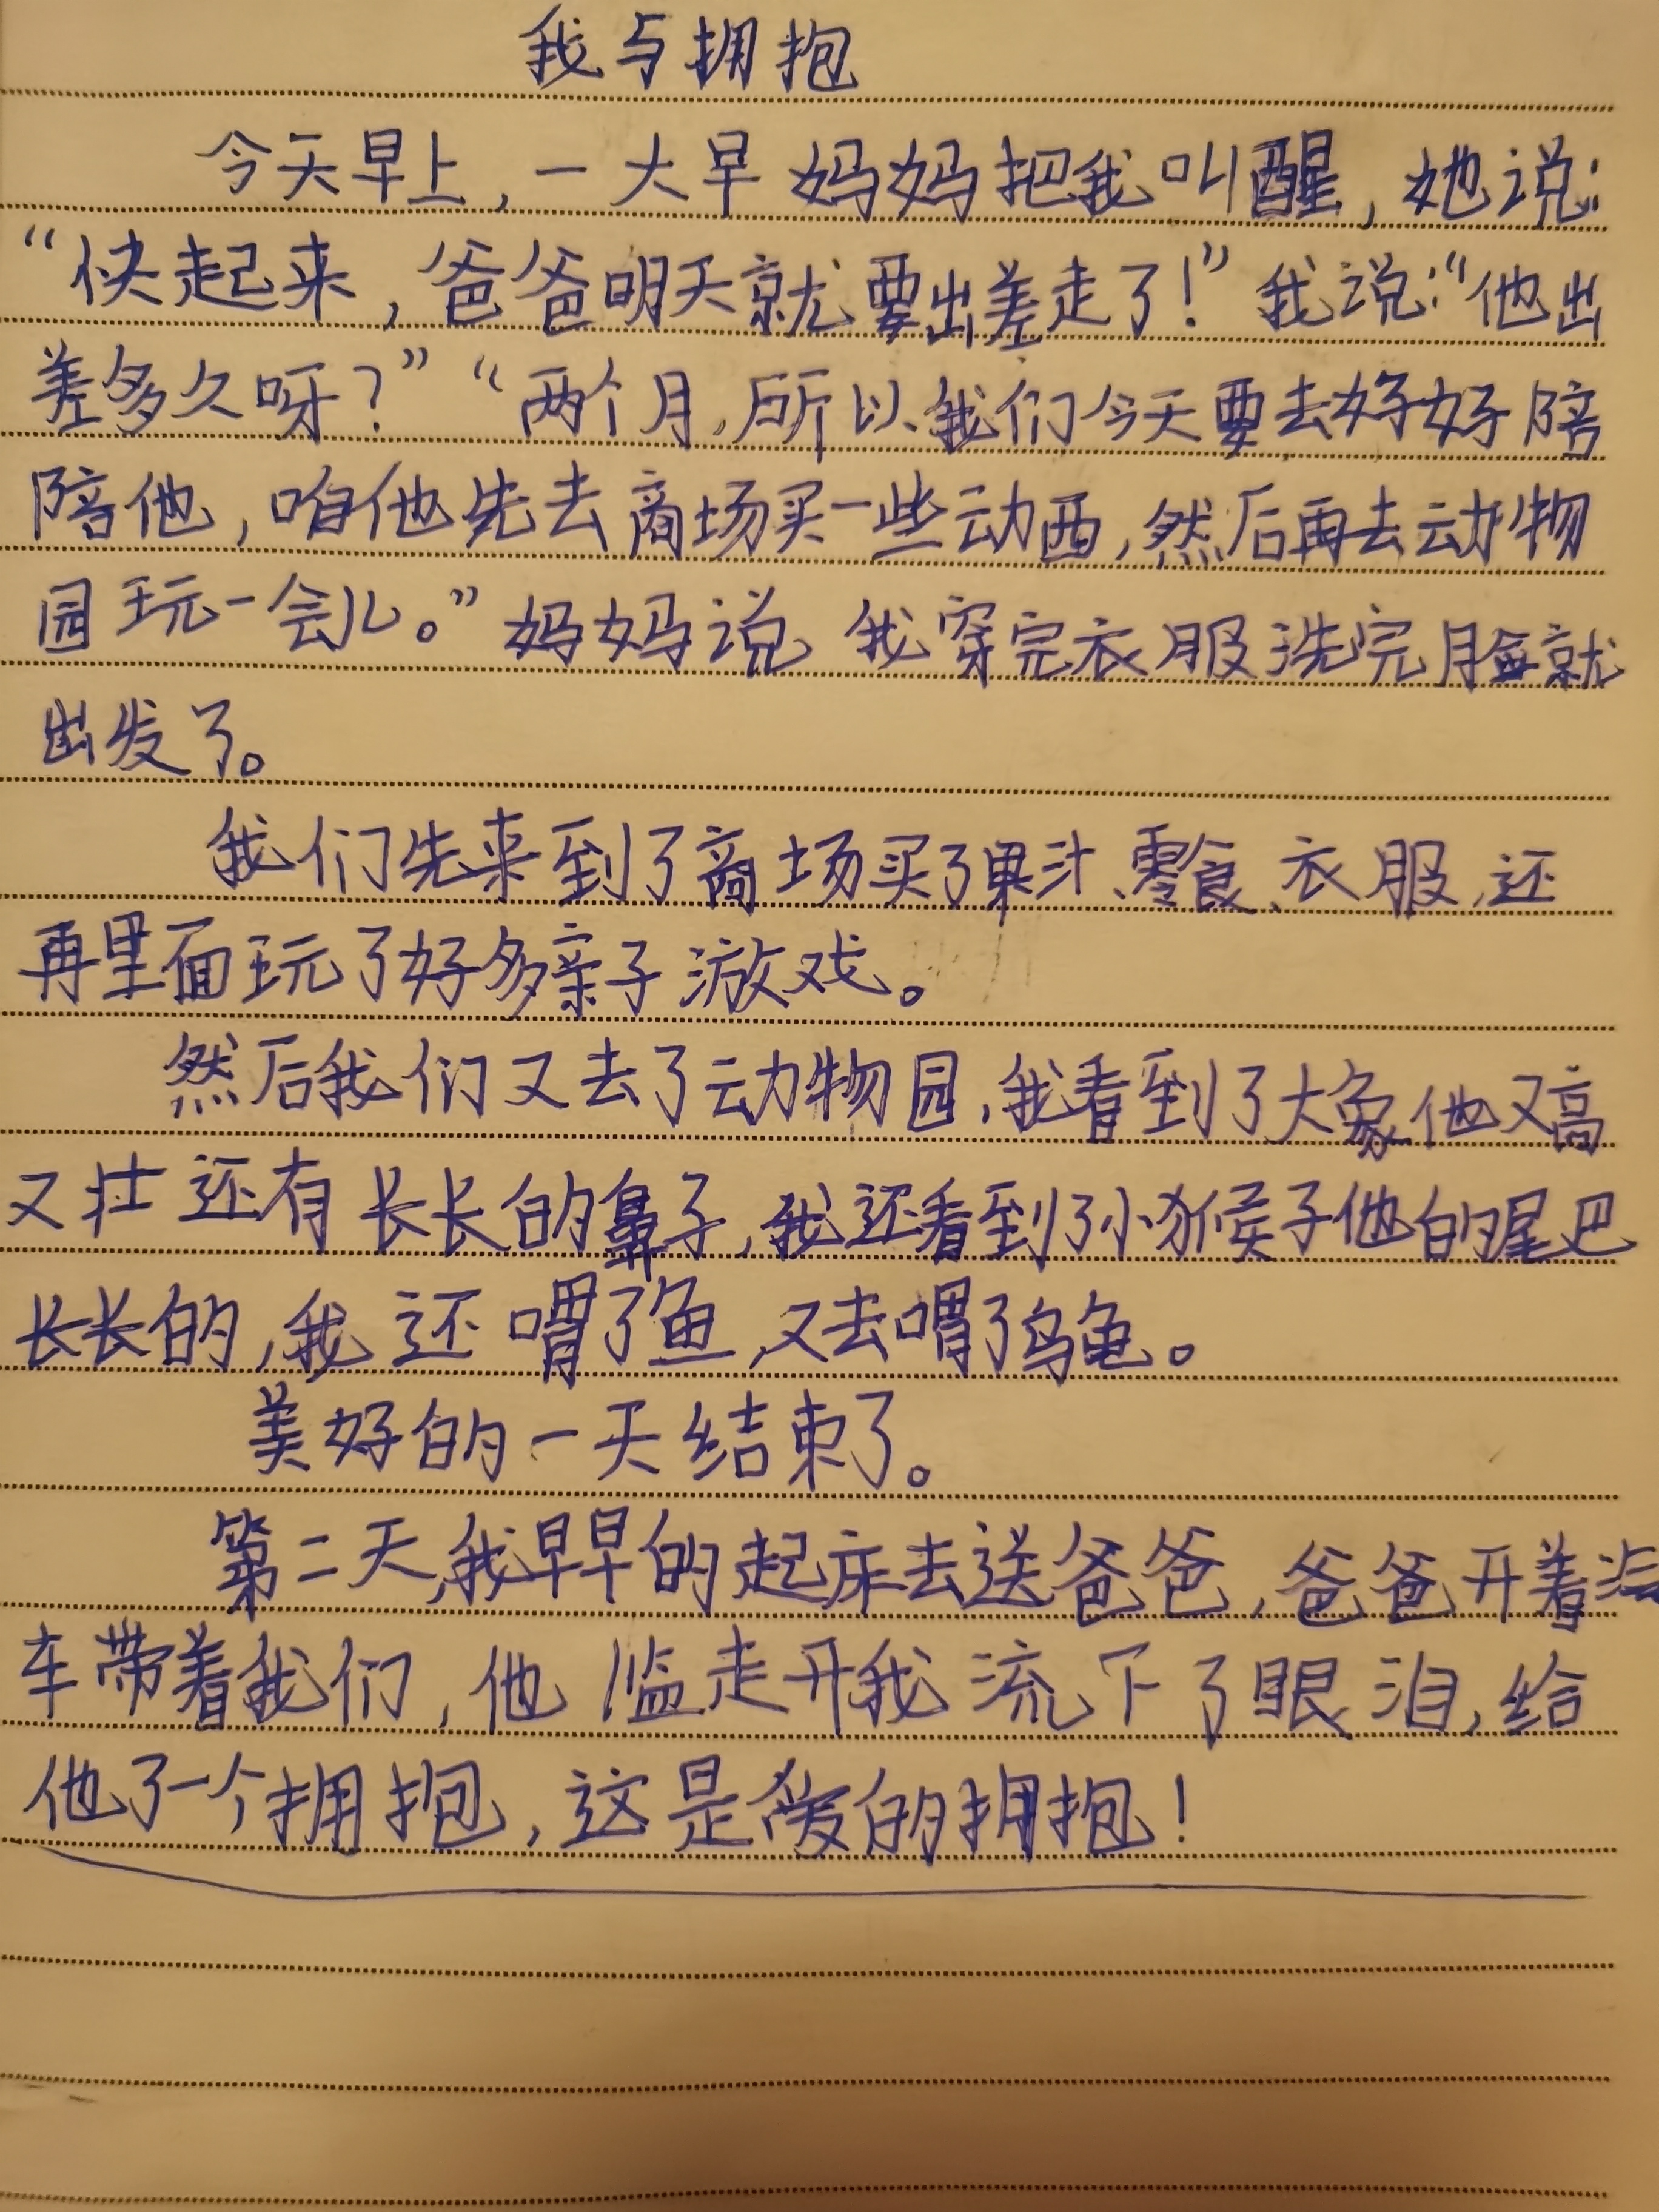 我与拥抱
今天早上,一大早妈妈把我叫醒,她说:
“快起来,爸爸明天就要出差走了!”我说:“他出
差多久呀?”“两个月,所以我们今天要去好好陪
陪他,咱他先去商场买一些动西,然后再去动物
园玩一会儿。”妈妈说 我穿完衣服洗完脸就
出发了。
我们先来到了商场买了果汁、零食、衣服,还
再里面玩了好多亲子游戏。
然后我们又去了动物园,我看到了大象他又高
又壮还有长长的鼻子,我还看到了小猴子他的尾巴
长长的,我还喂了鱼,又去喂了乌龟。
美好的一天结束了。
第二天,我早早的起床去送爸爸,爸爸开着汽
车带着我们,他临走开我流下了眼泪,给
他了一个拥抱,这是爱的拥抱!